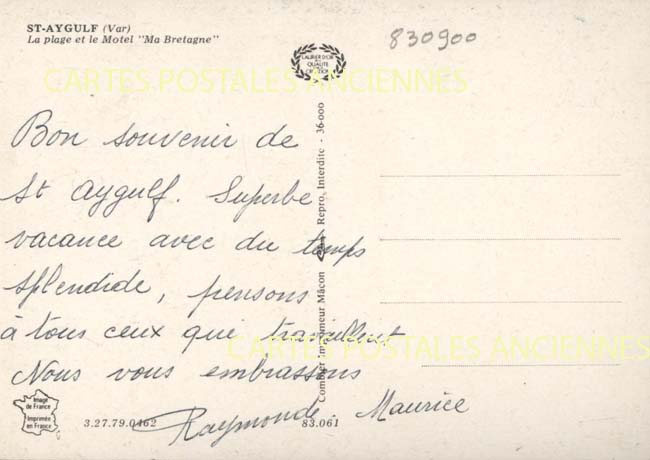 ST-AYGULF (Var)
La plage et le Motel "Ma Bretagne"
830900
LAURIER D'OR
QUALITÉ
CARTES POSTALES ANCIENNES
Bon souvenir de
St Aygulf. Superbe
vacance avec du temps
splendide, pensons
à tous ceux que travaillent
Nous vous embrassons
Raymonde. Maurice
Combier Imprimeur Mâcon
Repro. Interdite - 36-000
CARTES POSTALES ANCIENNES
Image
de France
Imprimée
en France
3.27.79.0462
83.061